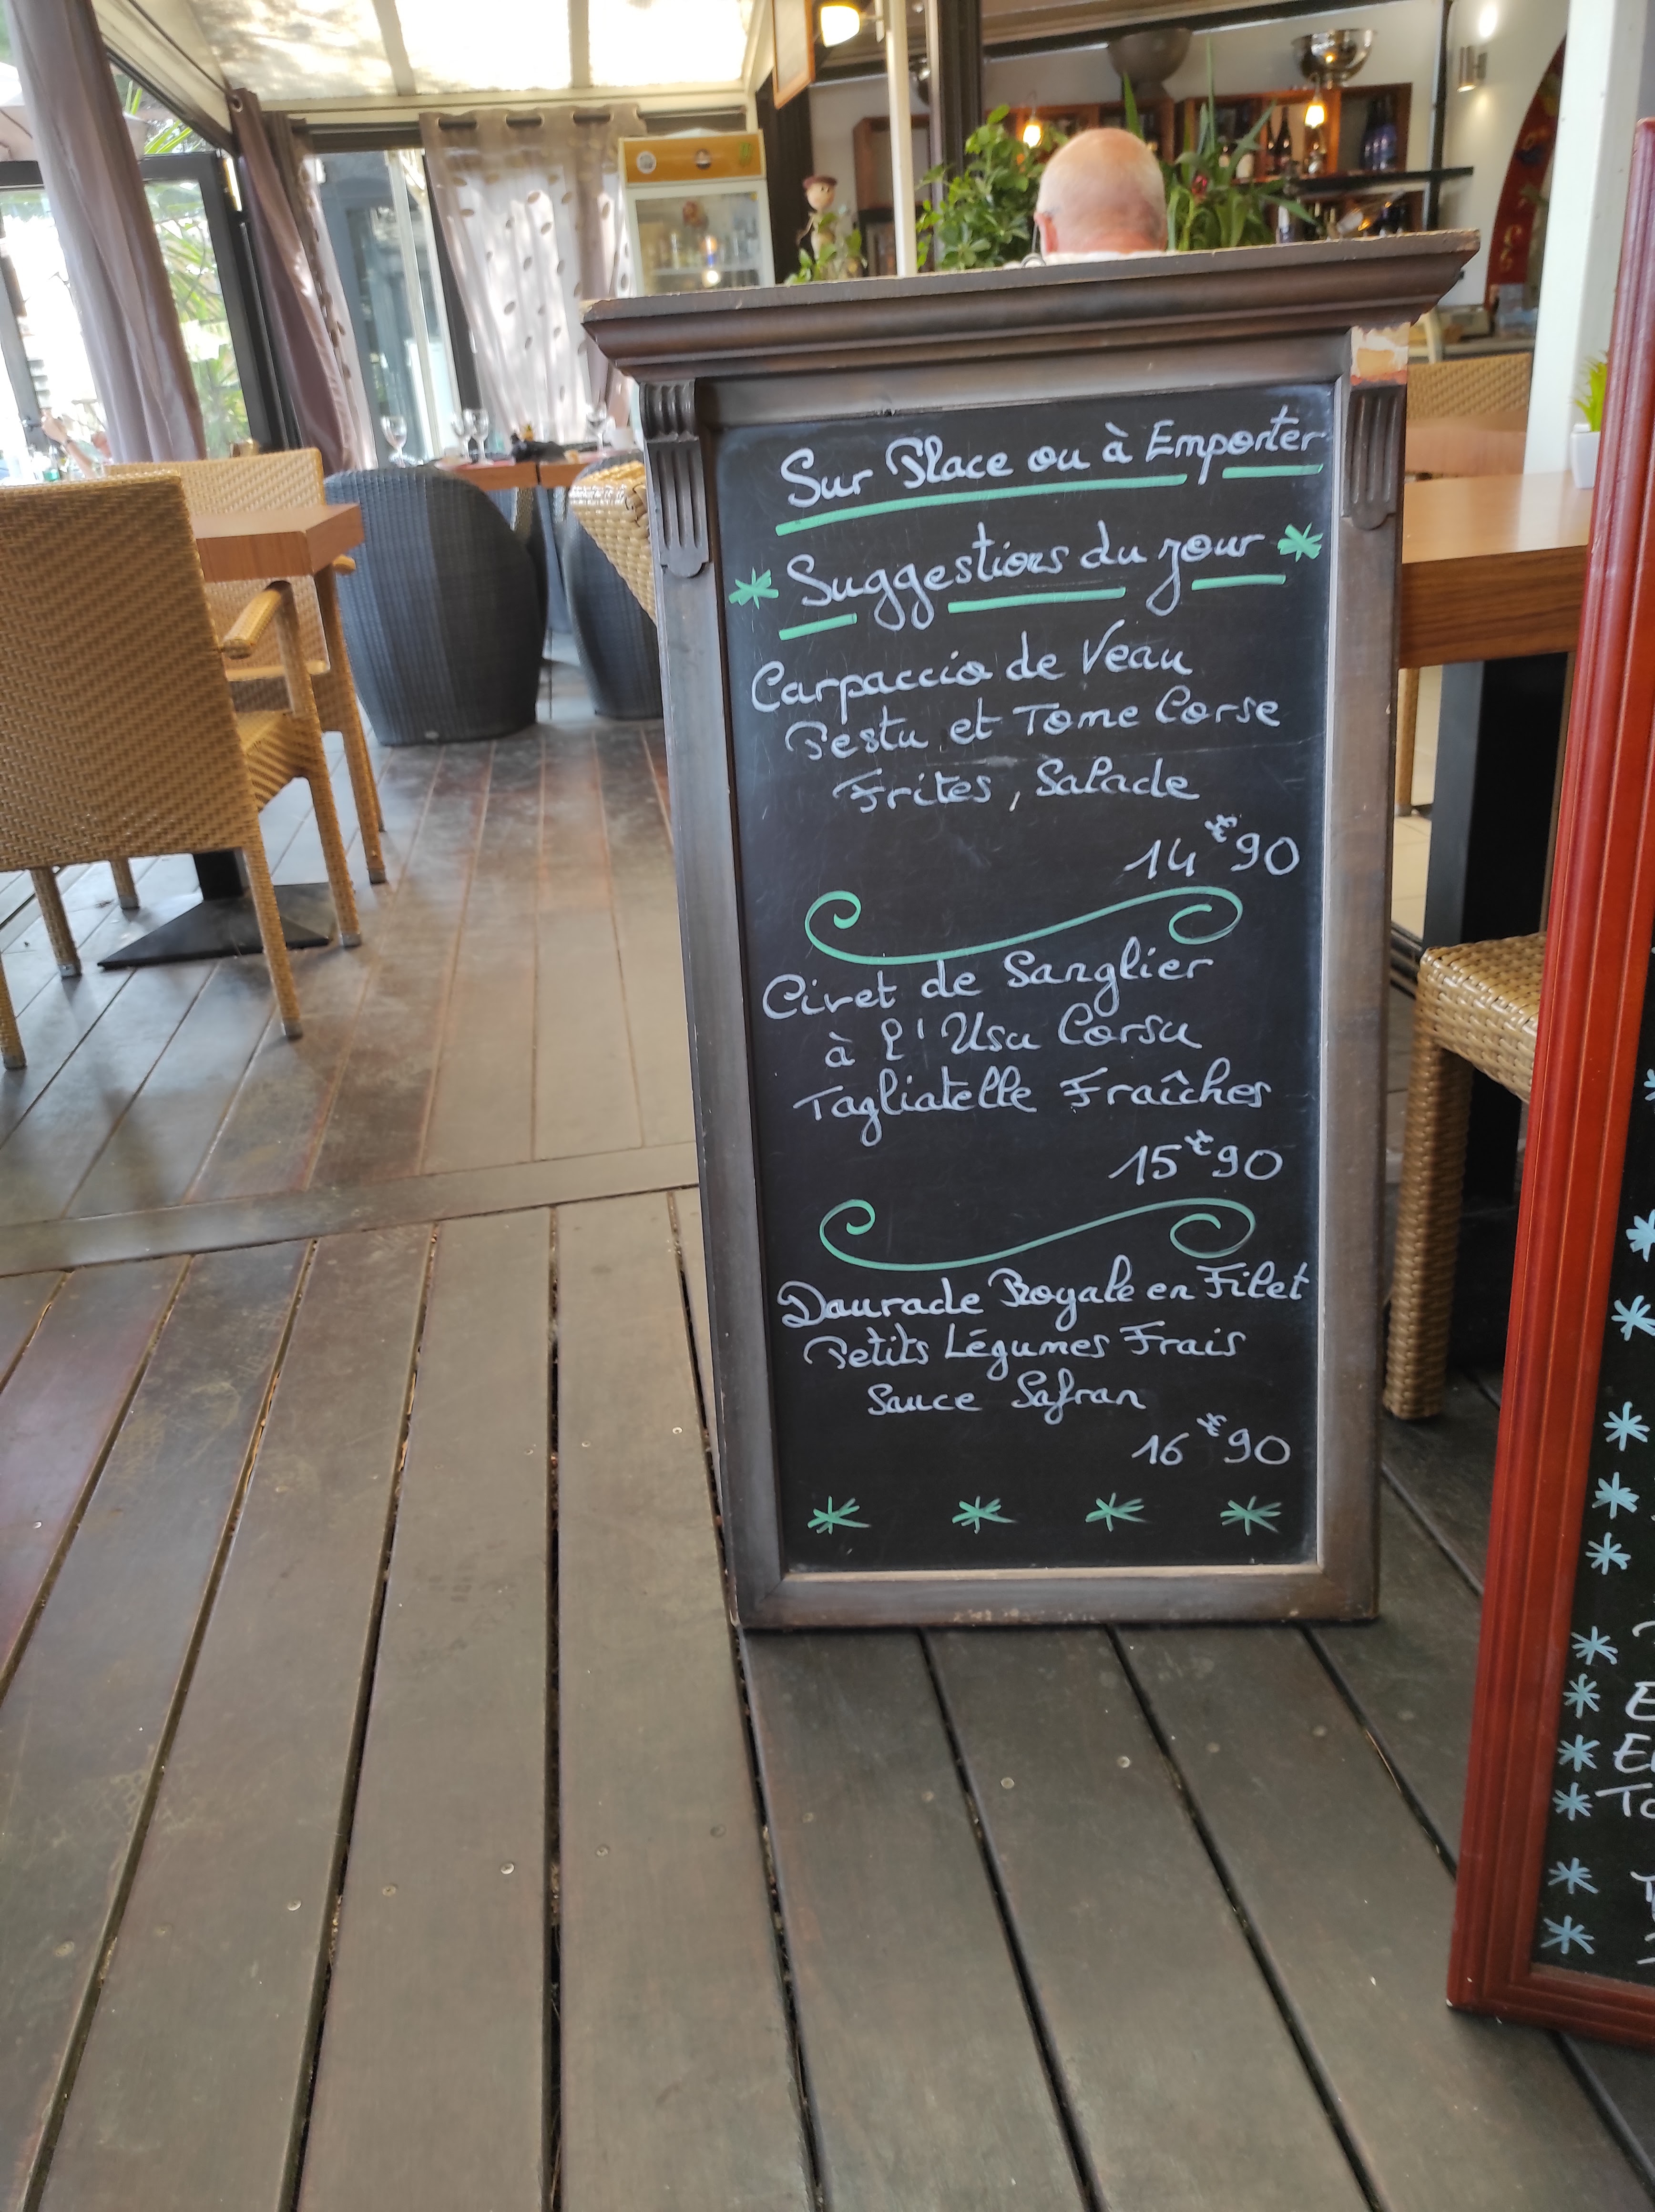 Sur Place ou à Emporter
Suggestions du jour
Carpaccio de Veau
Pestu et Tome Corse
Frites, Salade
14€90
Civet de Sanglier
à l'Usu Corsu
Tagliatelle Fraîches
15€90
Daurade Royale en Filet
Petits Légumes Frais
Sauce Safran
16€90